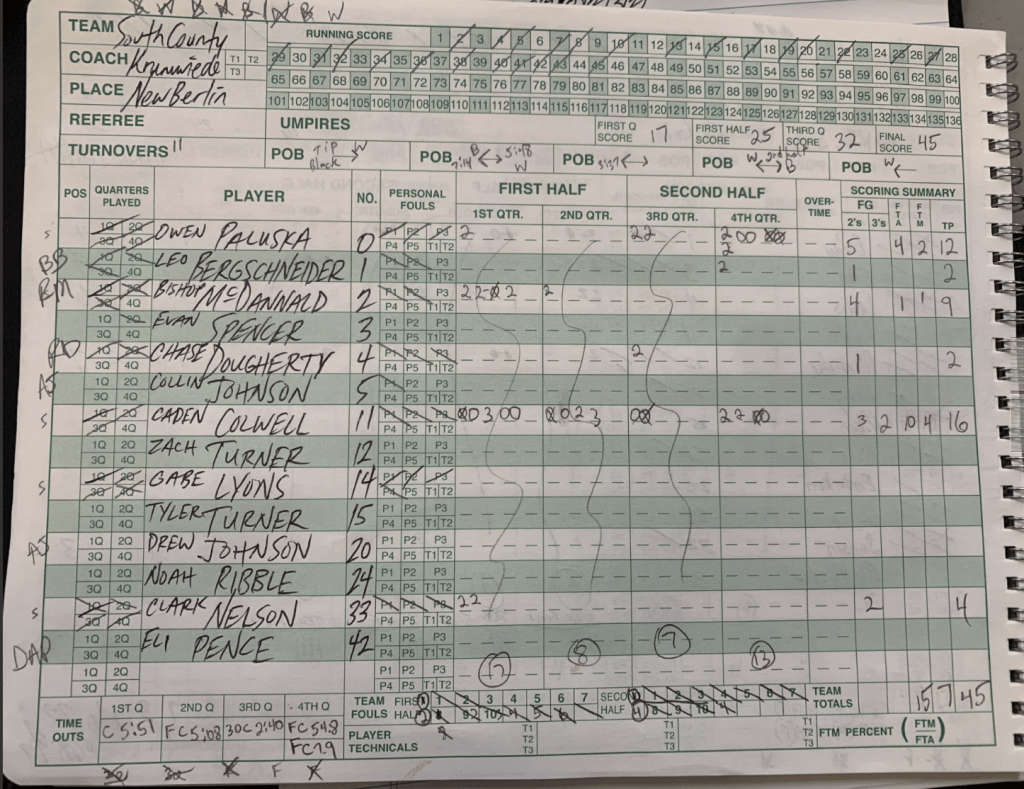 B W B B B W B W
TEAM South County RUNNING SCORE 1 2 3 4 5 6 7 8 9 10 11 12 13 14 15 16 17 18 19 20 21 22 23 24 25 26 27 28
COACH Krumwiede T1 T2 29 30 31 32 33 34 35 36 37 38 39 40 41 42 43 44 45 46 47 48 49 50 51 52 53 54 55 56 57 58 59 60 61 62 63 64
T3
PLACE New Berlin 65 66 67 68 69 70 71 72 73 74 75 76 77 78 79 80 81 82 83 84 85 86 87 88 89 90 91 92 93 94 95 96 97 98 99 100
101 102 103 104 105 106 107 108 109 110 111 112 113 114 115 116 117 118 119 120 121 122 123 124 125 126 127 128 129 130 131 132 133 134 135 136
REFEREE UMPIRES FIRST Q SCORE 17 FIRST HALF SCORE 25 THIRD Q SCORE 32 FINAL SCORE 45
TURNOVERS 11 POB Tip Block → W POB B 7:14 ↔ 5:48 W POB 3:37 ↔ POB W ↔ 2nd half B POB W ←
POS QUARTERS PLAYED PLAYER NO. PERSONAL FOULS FIRST HALF SECOND HALF OVER-TIME SCORING SUMMARY
1ST QTR. 2ND QTR. 3RD QTR. 4TH QTR. FG 2's 3's FTA FTM TP
S 1Q 2Q 3Q 4Q OWEN PALUSKA 0 P1 P2 P3 P4 P5 T1 T2 2 22 200 2 5 4 2 12
BB 1Q 2Q 3Q 4Q LEO BERGSCHNEIDER 1 P1 P2 P3 P4 P5 T1 T2 2 1 2
BM 1Q 2Q 3Q 4Q BISHOP McDANNALD 2 P1 P2 P3 P4 P5 T1 T2 2202 2 4 1 1 9
1Q 2Q 3Q 4Q EVAN SPENCER 3 P1 P2 P3 P4 P5 T1 T2
RD 1Q 2Q 3Q 4Q CHASE DOUGHERTY 4 P1 P2 P3 P4 P5 T1 T2 2 1 2
AJ 1Q 2Q 3Q 4Q COLLIN JOHNSON 5 P1 P2 P3 P4 P5 T1 T2
S 1Q 2Q 3Q 4Q CADEN COLWELL 11 P1 P2 P3 P4 P5 T1 T2 00300 0023 00 2200 3 2 10 4 16
1Q 2Q 3Q 4Q ZACH TURNER 12 P1 P2 P3 P4 P5 T1 T2
S 1Q 2Q 3Q 4Q GABE LYONS 14 P1 P2 P3 P4 P5 T1 T2
1Q 2Q 3Q 4Q TYLER TURNER 15 P1 P2 P3 P4 P5 T1 T2
AJ 1Q 2Q 3Q 4Q DREW JOHNSON 20 P1 P2 P3 P4 P5 T1 T2
1Q 2Q 3Q 4Q NOAH RIBBLE 24 P1 P2 P3 P4 P5 T1 T2
S 1Q 2Q 3Q 4Q CLARK NELSON 33 P1 P2 P3 P4 P5 T1 T2 22 2 4
DAP 1Q 2Q 3Q 4Q ELI PENCE 42 P1 P2 P3 P4 P5 T1 T2
1Q 2Q 3Q 4Q P1 P2 P3 P4 P5 T1 T2 17 8 7 13
TIME OUTS 1ST Q 2ND Q 3RD Q 4TH Q TEAM FOULS FIRST HALF 1 2 3 4 5 6 7 SECOND HALF 1 2 3 4 5 6 7 TEAM TOTALS 15 7 45
C 5:51 FC 5:08 30C 2:40 FC 54.8 PLAYER TECHNICALS T1 T2 T3 T1 T2 T3 T1 T2 T3 FTM PERCENT (FTM/FTA)
FC 7.9